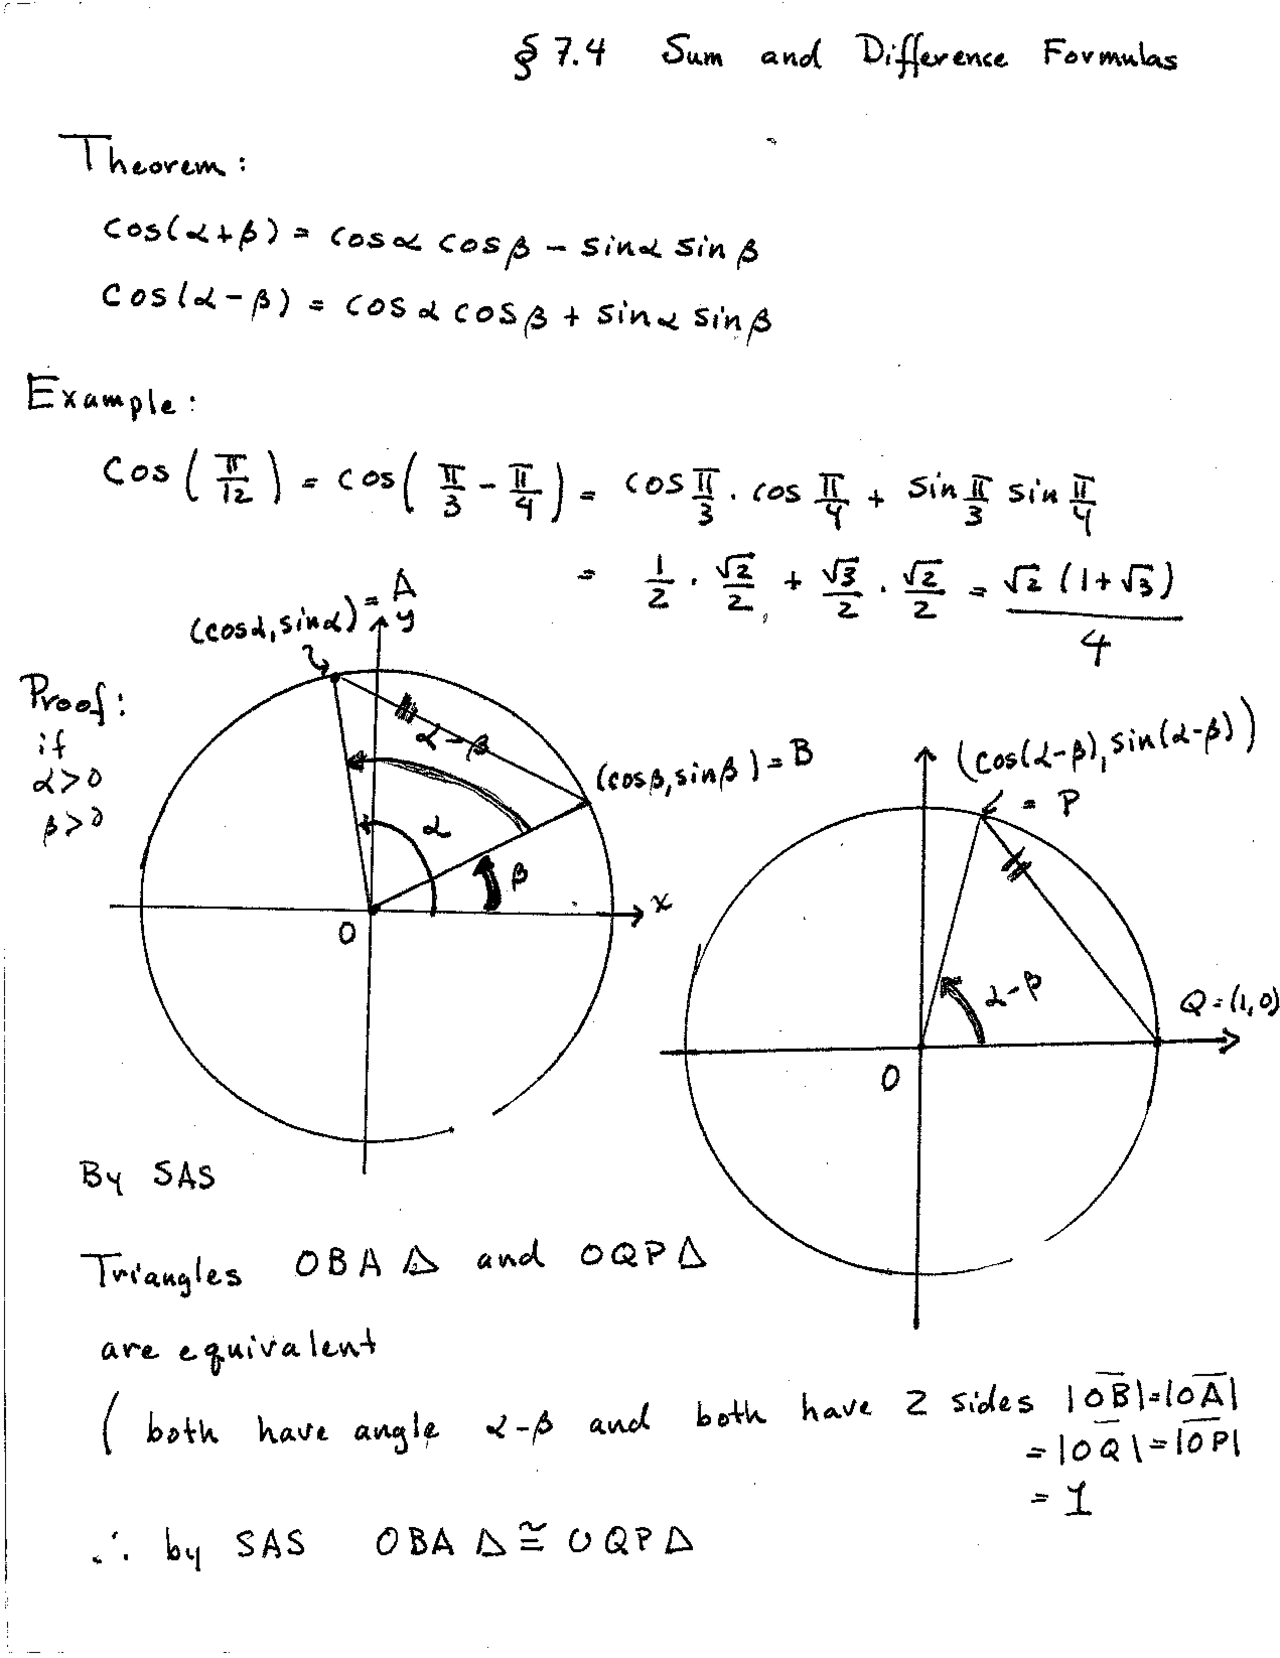 § 7.4 Sum and Difference Formulas
Theorem:
cos(α+β) = cosα cosβ − sinα sinβ
cos(α−β) = cosα cosβ + sinα sinβ
Example:
cos(π/12) = cos(π/3 − π/4) = cos π/3 · cos π/4 + sin π/3 sin π/4
= 1/2 · √2/2 + √3/2 · √2/2 = √2(1+√3)/4
(cosα, sinα) = A
y
Proof:
if
α>0
β>0
α−β
(cosβ, sinβ) = B
α
β
x
O
(cos(α−β), sin(α−β))
= P
α−β
Q = (1,0)
O
By SAS
Triangles OBA △ and OQP △
are equivalent
( both have angle α−β and both have 2 sides |OB̅|=|OA̅|
= |OQ̅| = |OP̅|
= 1
∴ by SAS OBA △ ≅ OQP △